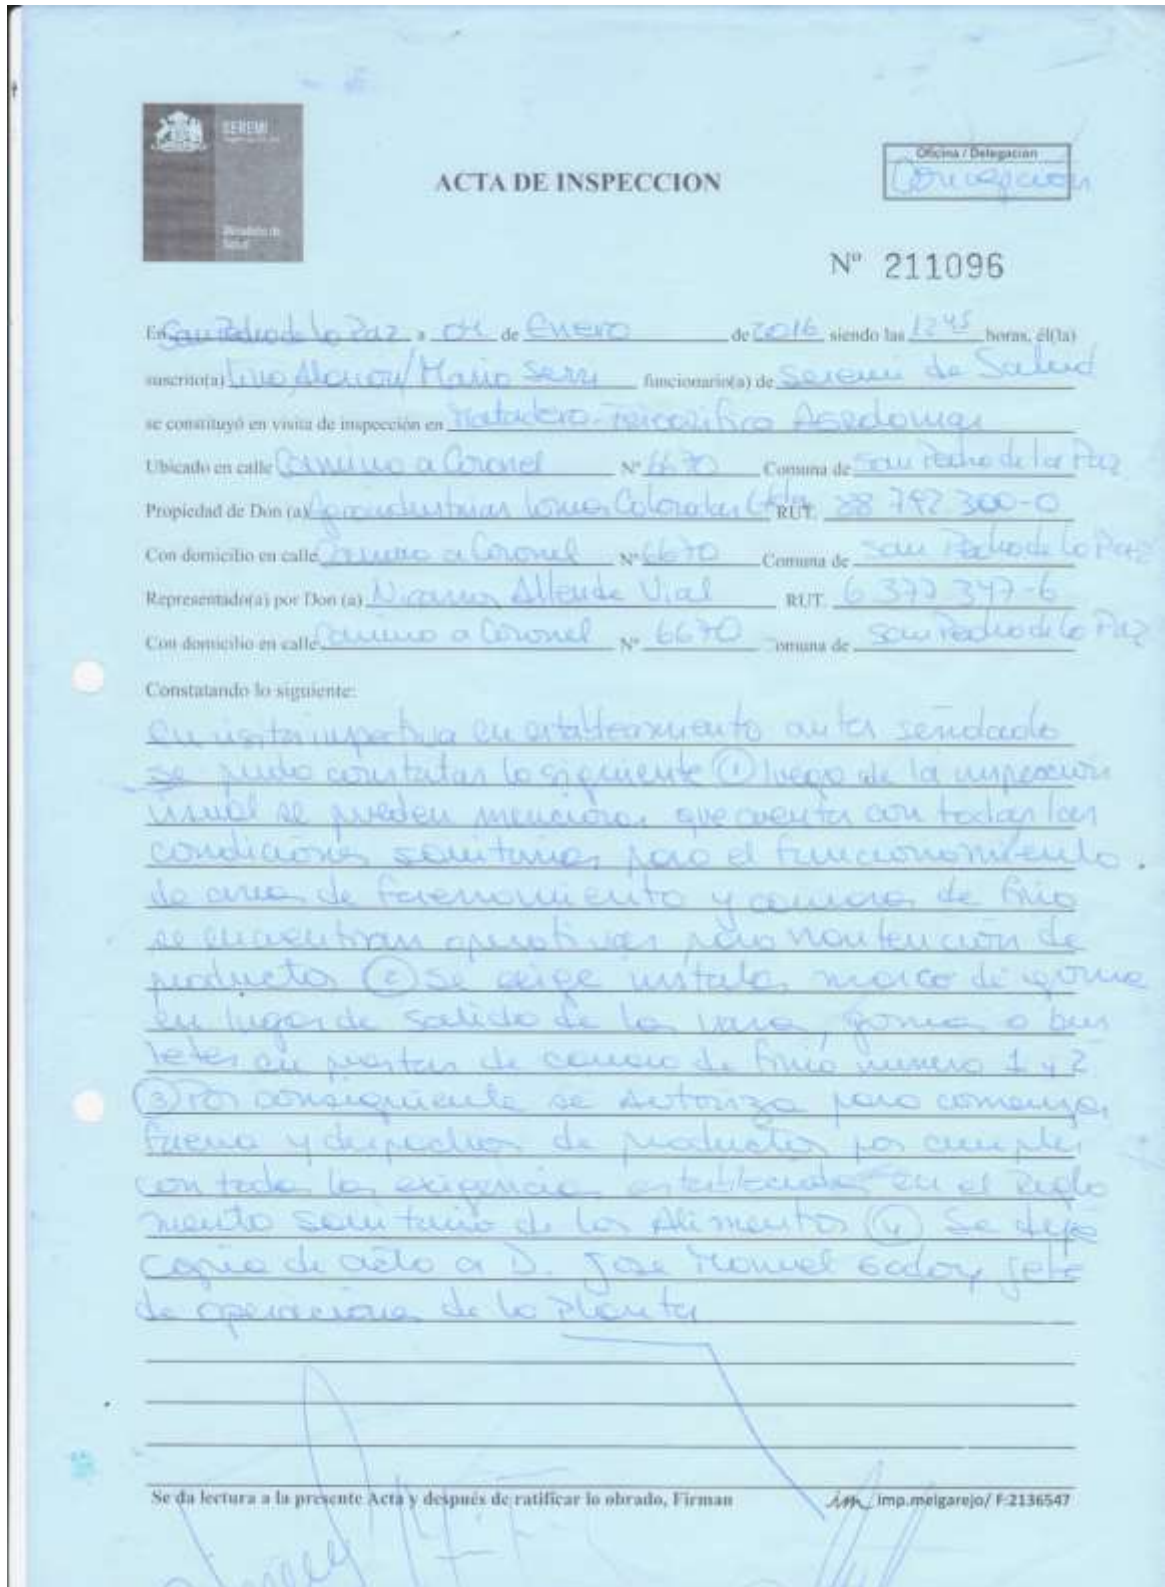 SEREMI
Ministerio de
Salud
ACTA DE INSPECCION
Oficina / Delegación
Concepción
Nº 211096
En San Pedro de la Paz a 04 de Enero de 2016 siendo las 12 45 horas, él(la)
suscrito(a) Alarcon/ Mario funcionario(a) de Seremi de Salud
se constituyó en visita de inspección en Matadero-Frigorífico
Ubicado en calle Camino a Coronel Nº 6670 Comuna de San Pedro de la Paz
Propiedad de Don (a) Agroindustrias Lomas Coloradas Ltda RUT. 88 792 300-0
Con domicilio en calle Camino a Coronel Nº 6670 Comuna de San Pedro de la Paz
Representado(a) por Don (a) Nicanor Allende Vial RUT. 6 377 347-6
Con domicilio en calle Camino a Coronel Nº 6670 omuna de San Pedro de la Paz
Constatando lo siguiente:
en visita inspectiva en establecimiento antes señalado
se pudo constatar lo siguiente ① luego de la inspección
visual se pueden mencionar que cuenta con todas las
condiciones sanitarias para el funcionamiento
de area de faenamiento y camaras de frio
se encuentran operativas para mantención de
producto ② Se exige instalar marco de goma
en lugar de salida de las varas, gomas o bur
letes en puertas de camara de frio numero 1 y 2
③ Por consiguiente se Autoriza para comenzar
faena y despachos de productos por cumplir
con todas las exigencias establecidas en el Regla
mento sanitario de los Alimentos ④ Se deja
copia de acta a D. Jose Manuel Godoy jefe
de operaciones de la Planta
Se da lectura a la presente Acta y después de ratificar lo obrado, Firman
im imp.melgarejo/ F:2136547